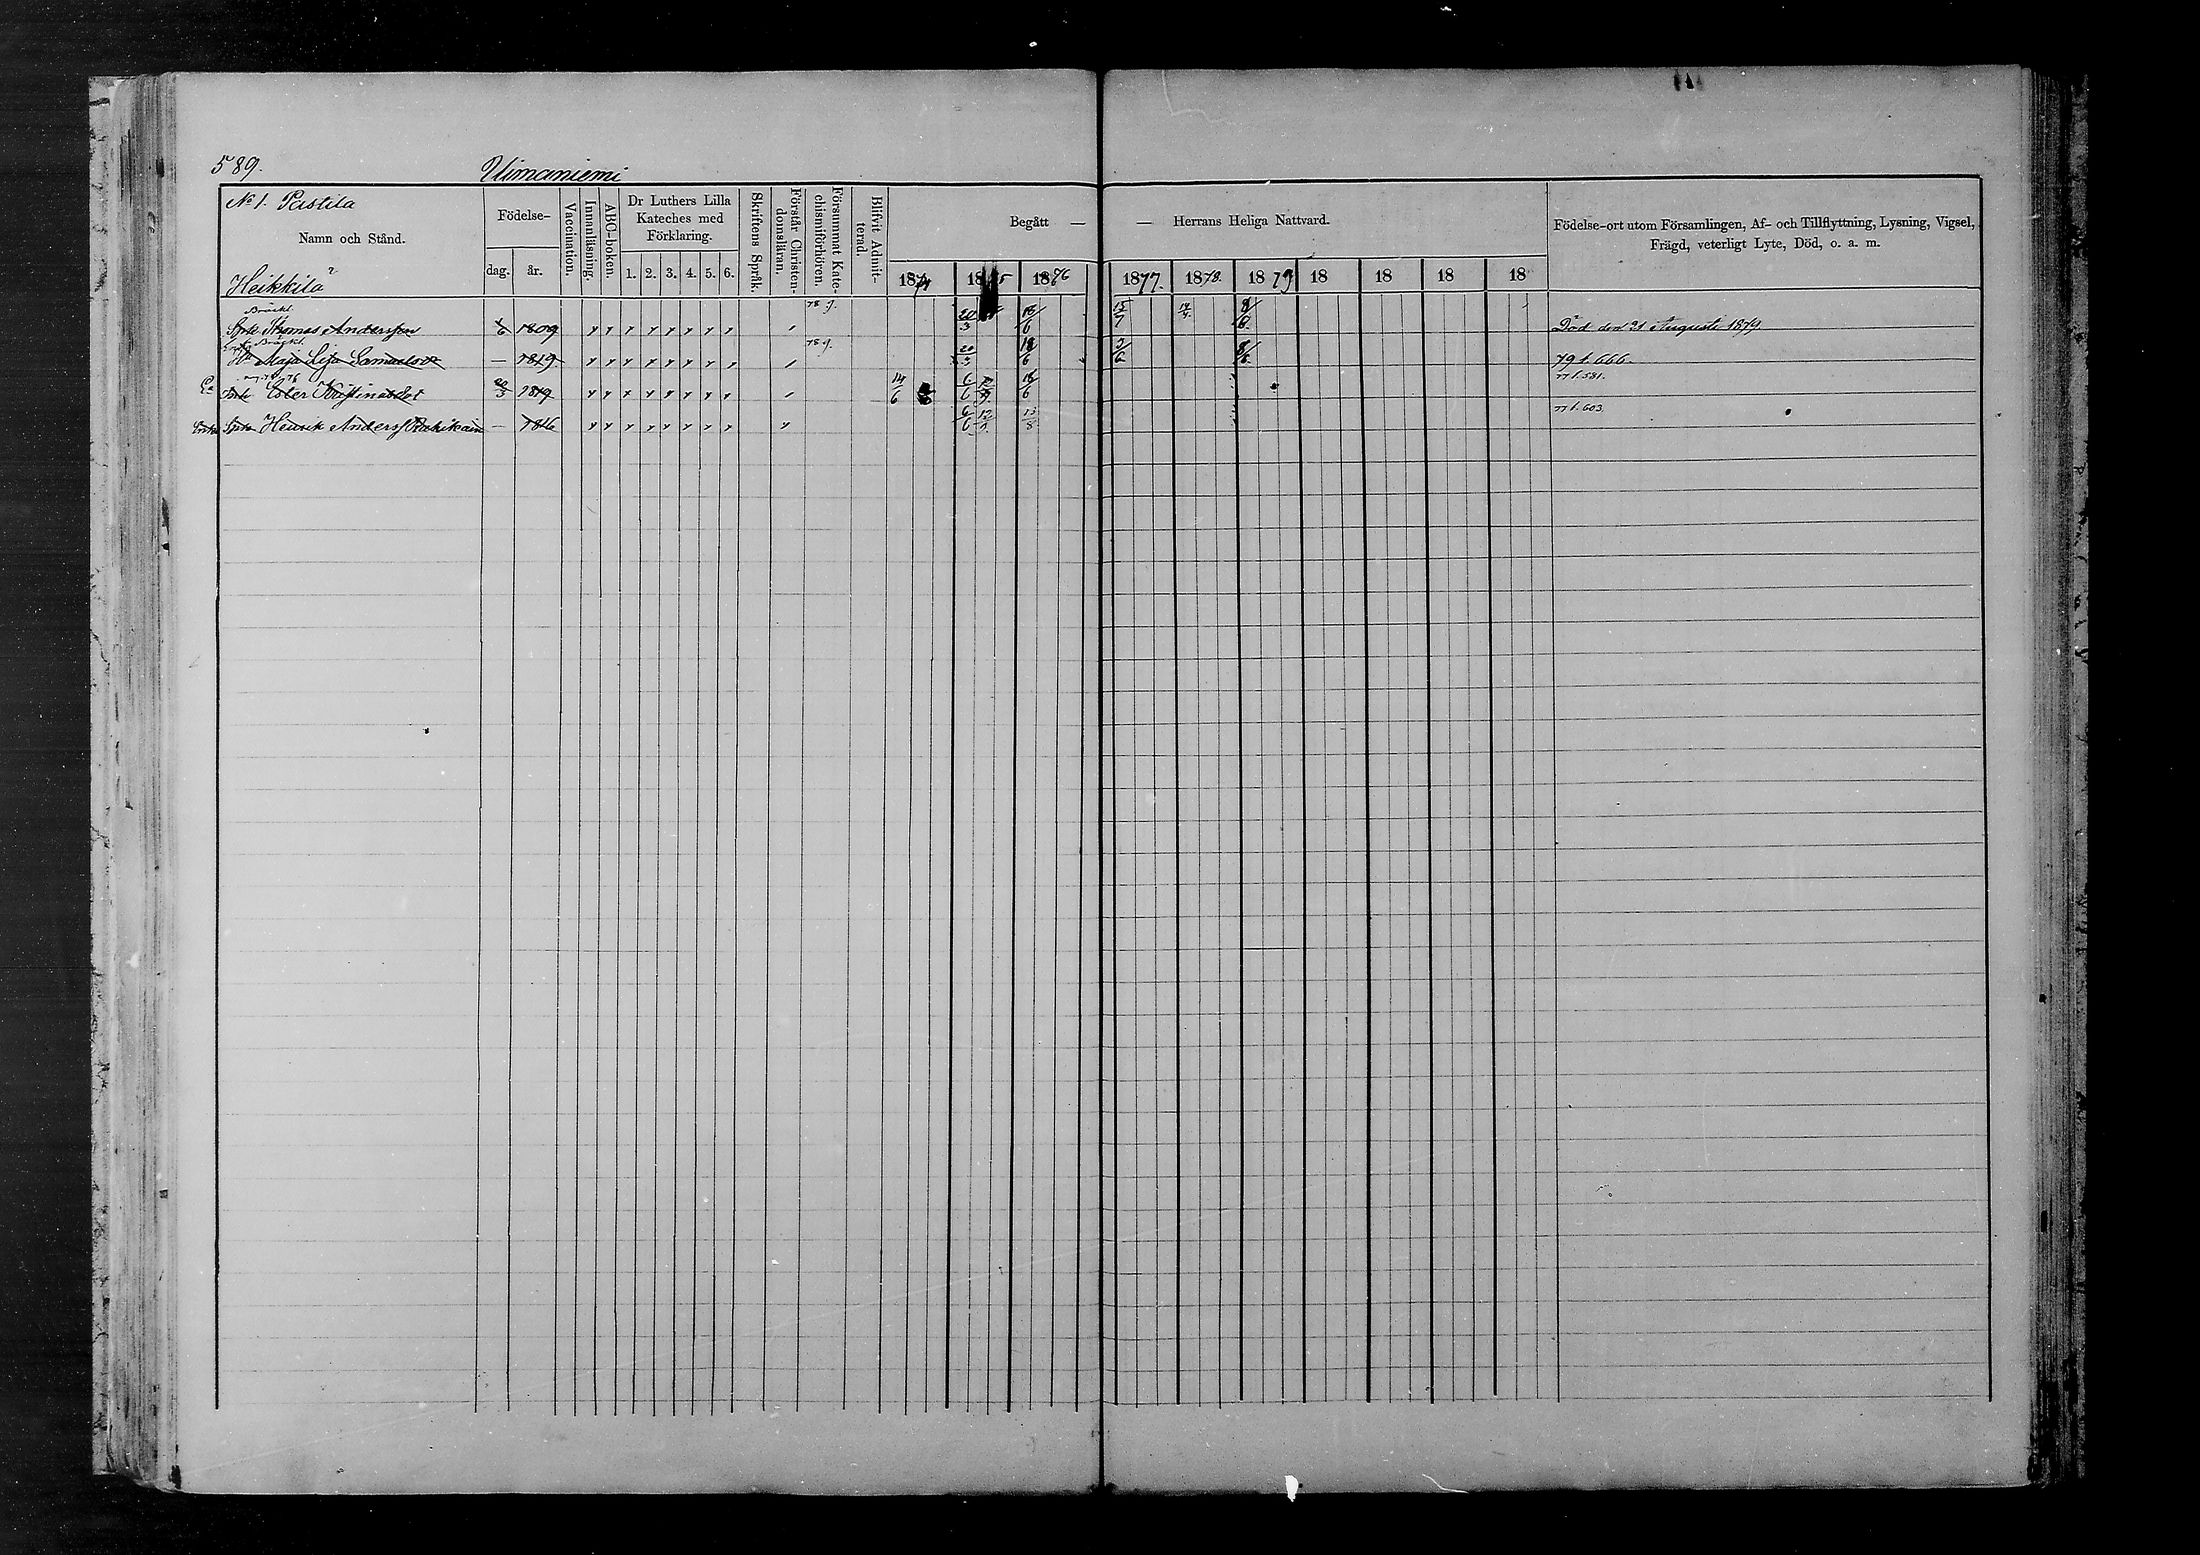 589.
Uimaniemi
No 1. Pastila
Namn och Stånd.
Heikkilä
Födelse-
dag.
år.
Vaccination.
Innanläsning.
ABC-boken.
Dr Luthers Lilla
Kateches med
Förklaring.
1. 2. 3. 4. 5. 6.
Skriftens Språk.
Förstår Christen-
domsläran.
Försummat Kate-
chismiförhören.
Blifvit Admit-
terad.
Begått — — Herrans Heliga Nattvard.
1874 1875 1876 1877 1878. 1879 18 18 18 18
Födelse-ort utom Församlingen, Af- och Tillflyttning, Lysning, Vigsel,
Frägd, veterligt Lyte, Död, o. a. m.
Bräckl.
Thomas Andersson 1809 78 g. 20/3 18/6 15/7 8/6 Död den 21 Augusti 1879
Bräckl.
Maja Lisa 1819 78 g. 20/3 18/6 79 f. 666.
Ester Kristina 20/3 1849 14/6 6/6 18/6 77 f. 581.
Henrik Anders 1846 6/6 12/7 13/8 77 f. 603.